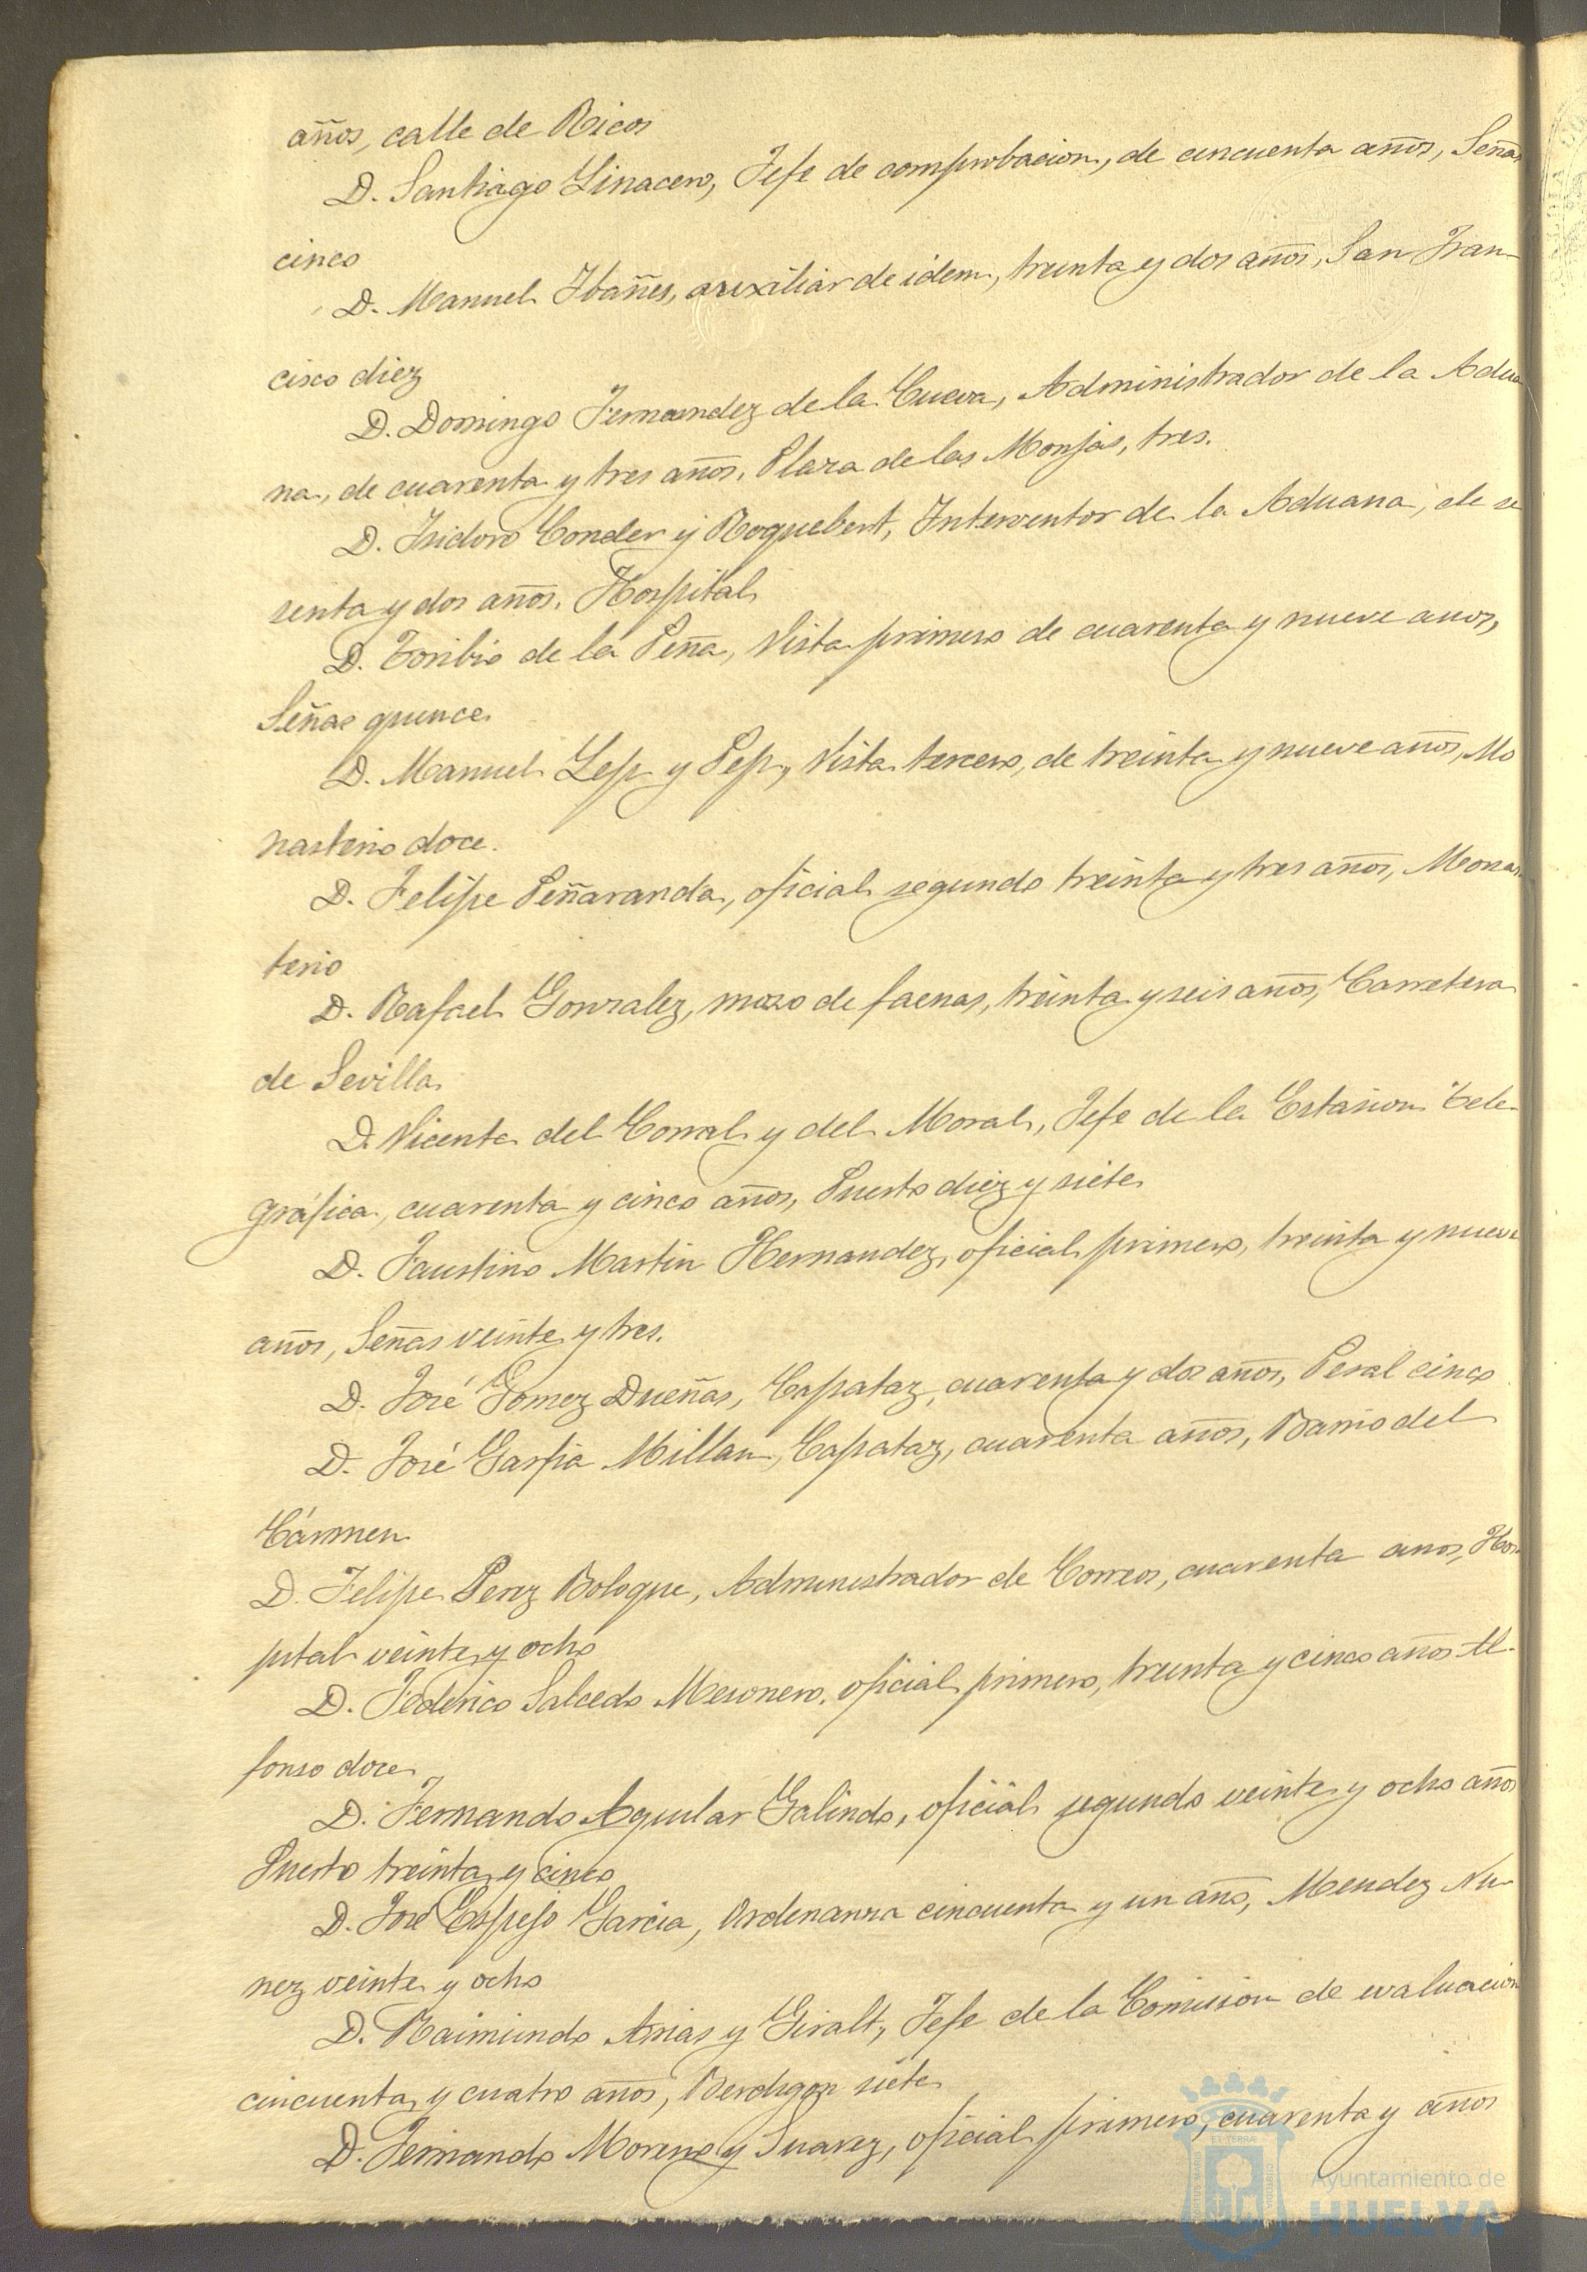 años, calle de Ricos
D. Santiago Linacero, Jefe de comprobacion, de cincuenta años, Señas
cinco
D. Manuel Ibañes, auxiliar de idem, treinta y dos años, San Fran-
cisco diez
D. Domingo Fernandez de la Cueva, Administrador de la Adua
na, de cuarenta y tres años, Plaza de las Monjas, tres.
D. Isidoro Conder y Roquebert, Interventor de la Aduana, de se
senta y dos años. Hospital
D. Toribio de la Peña, Vista primero de cuarenta y nueve años,
Señas quince
D. Manuel Lep y Pep, Vista tercero, de treinta y nueve años, Mo
nasterio doce.
D. Felipe Peñaranda, oficial segundo treinta y tres años, Monas
terio
D. Rafael Gonzalez, mozo de faenas, treinta y seis años, Carretera
de Sevilla
D. Vicente del Corral y del Moral, Jefe de la Estacion Tele
gráfica, cuarenta y cinco años, Puerto diez y siete
D. Faustino Martin Hernandez, oficial primero, treinta y nueve
años, Señas veinte y tres.
D. José Gomez Dueñas, Capataz, cuarenta y dos años, Peral cinco
D. José Garfia Millan, Capataz, cuarenta años, Barrio del
Cármen
D. Felipe Perez Bologue, Administrador de Correos, cuarenta anos, Hos
pital veinte y ocho
D. Federico Salcedo Mesonero, oficial primero, treinta y cinco años Al-
fonso doce
D. Fernando Aguilar Galindo, oficial segundo veinte y ocho años
Puerto treinta y cinco
D. José Espejo Garcia, Ordenanza cincuenta y un año, Mendez Nu-
nez veinte y ocho
D. Raimundo Arias y Giralt, Jefe de la Comision de evaluacion
cincuenta y cuatro años, Berdigon siete
D. Fernando Moreno y Suarez, oficial primero, cuarenta y años
Ayuntamiento de
HUELVA